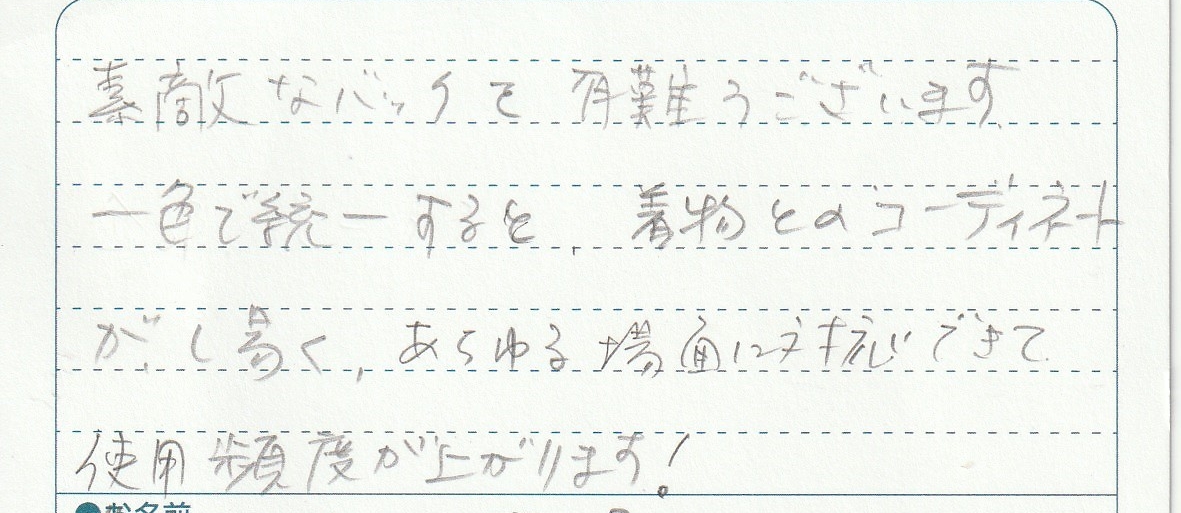 素敵なバックで有難うございます
一色で統一すると、着物とのコーディネート
がし易く、あらゆる場面に対応できて
使用頻度が上がります!
●お名前